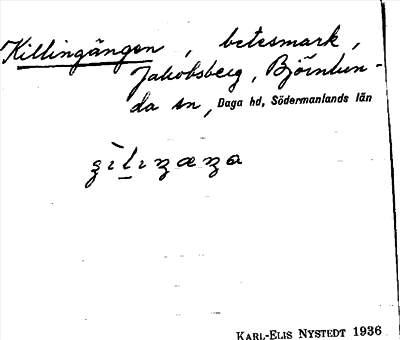 Killingängen, betesmark,
Jakobsberg, Björnlun-
da sn, Daga hd, Södermanlands län
KARL-ELIS NYSTEDT 1936